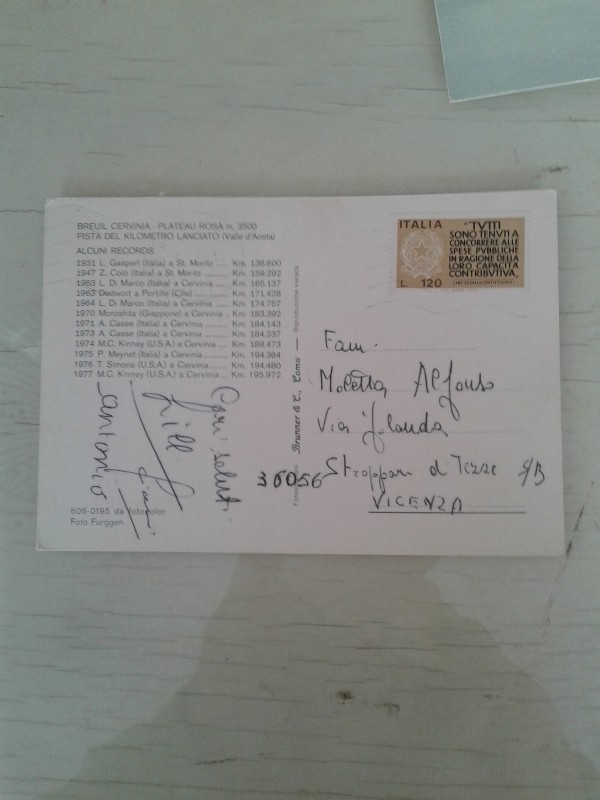 BREUIL CERVINIA - PLATEAU ROSÀ m. 3500
PISTA DEL KILOMETRO LANCIATO (Valle d'Aosta)
ALCUNI RECORDS
1931 L. Gasperl (Italia) a St. Moritz Km. 136.600
1947 Z. Colò (Italia) a St. Moritz Km. 159.292
1963 L. Di Marco (Italia) a Cervinia Km. 165.137
1963 Dedwort a Portillo (Cile) Km. 171.428
1964 L. Di Marco (Italia) a Cervinia Km. 174.757
1970 Moroshita (Giappone) a Cervinia Km. 183.392
1971 A. Casse (Italia) a Cervinia Km. 184.143
1973 A. Casse (Italia) a Cervinia Km. 184.237
1974 M.C. Kinney (U.S.A.) a Cervinia Km. 189.473
1975 P. Meynet (Italia) a Cervinia Km. 194.384
1976 T. Simons (U.S.A.) a Cervinia Km. 194.480
1977 M.C. Kinney (U.S.A.) a Cervinia Km. 195.972
Cari saluti
Antonio
606-0195 da fotocolor
Foto Furggen
Brunner & C., Como — Riproduzione vietata
ITALIA
L. 120
TUTTI
SONO TENUTI A
CONCORRERE ALLE
SPESE PUBBLICHE
IN RAGIONE DELLA
LORO CAPACITÀ
CONTRIBUTIVA.
Fam.
Moletta Alfonso
Via Jolanda
36056 Stroppari di Tezze S/B
VICENZA